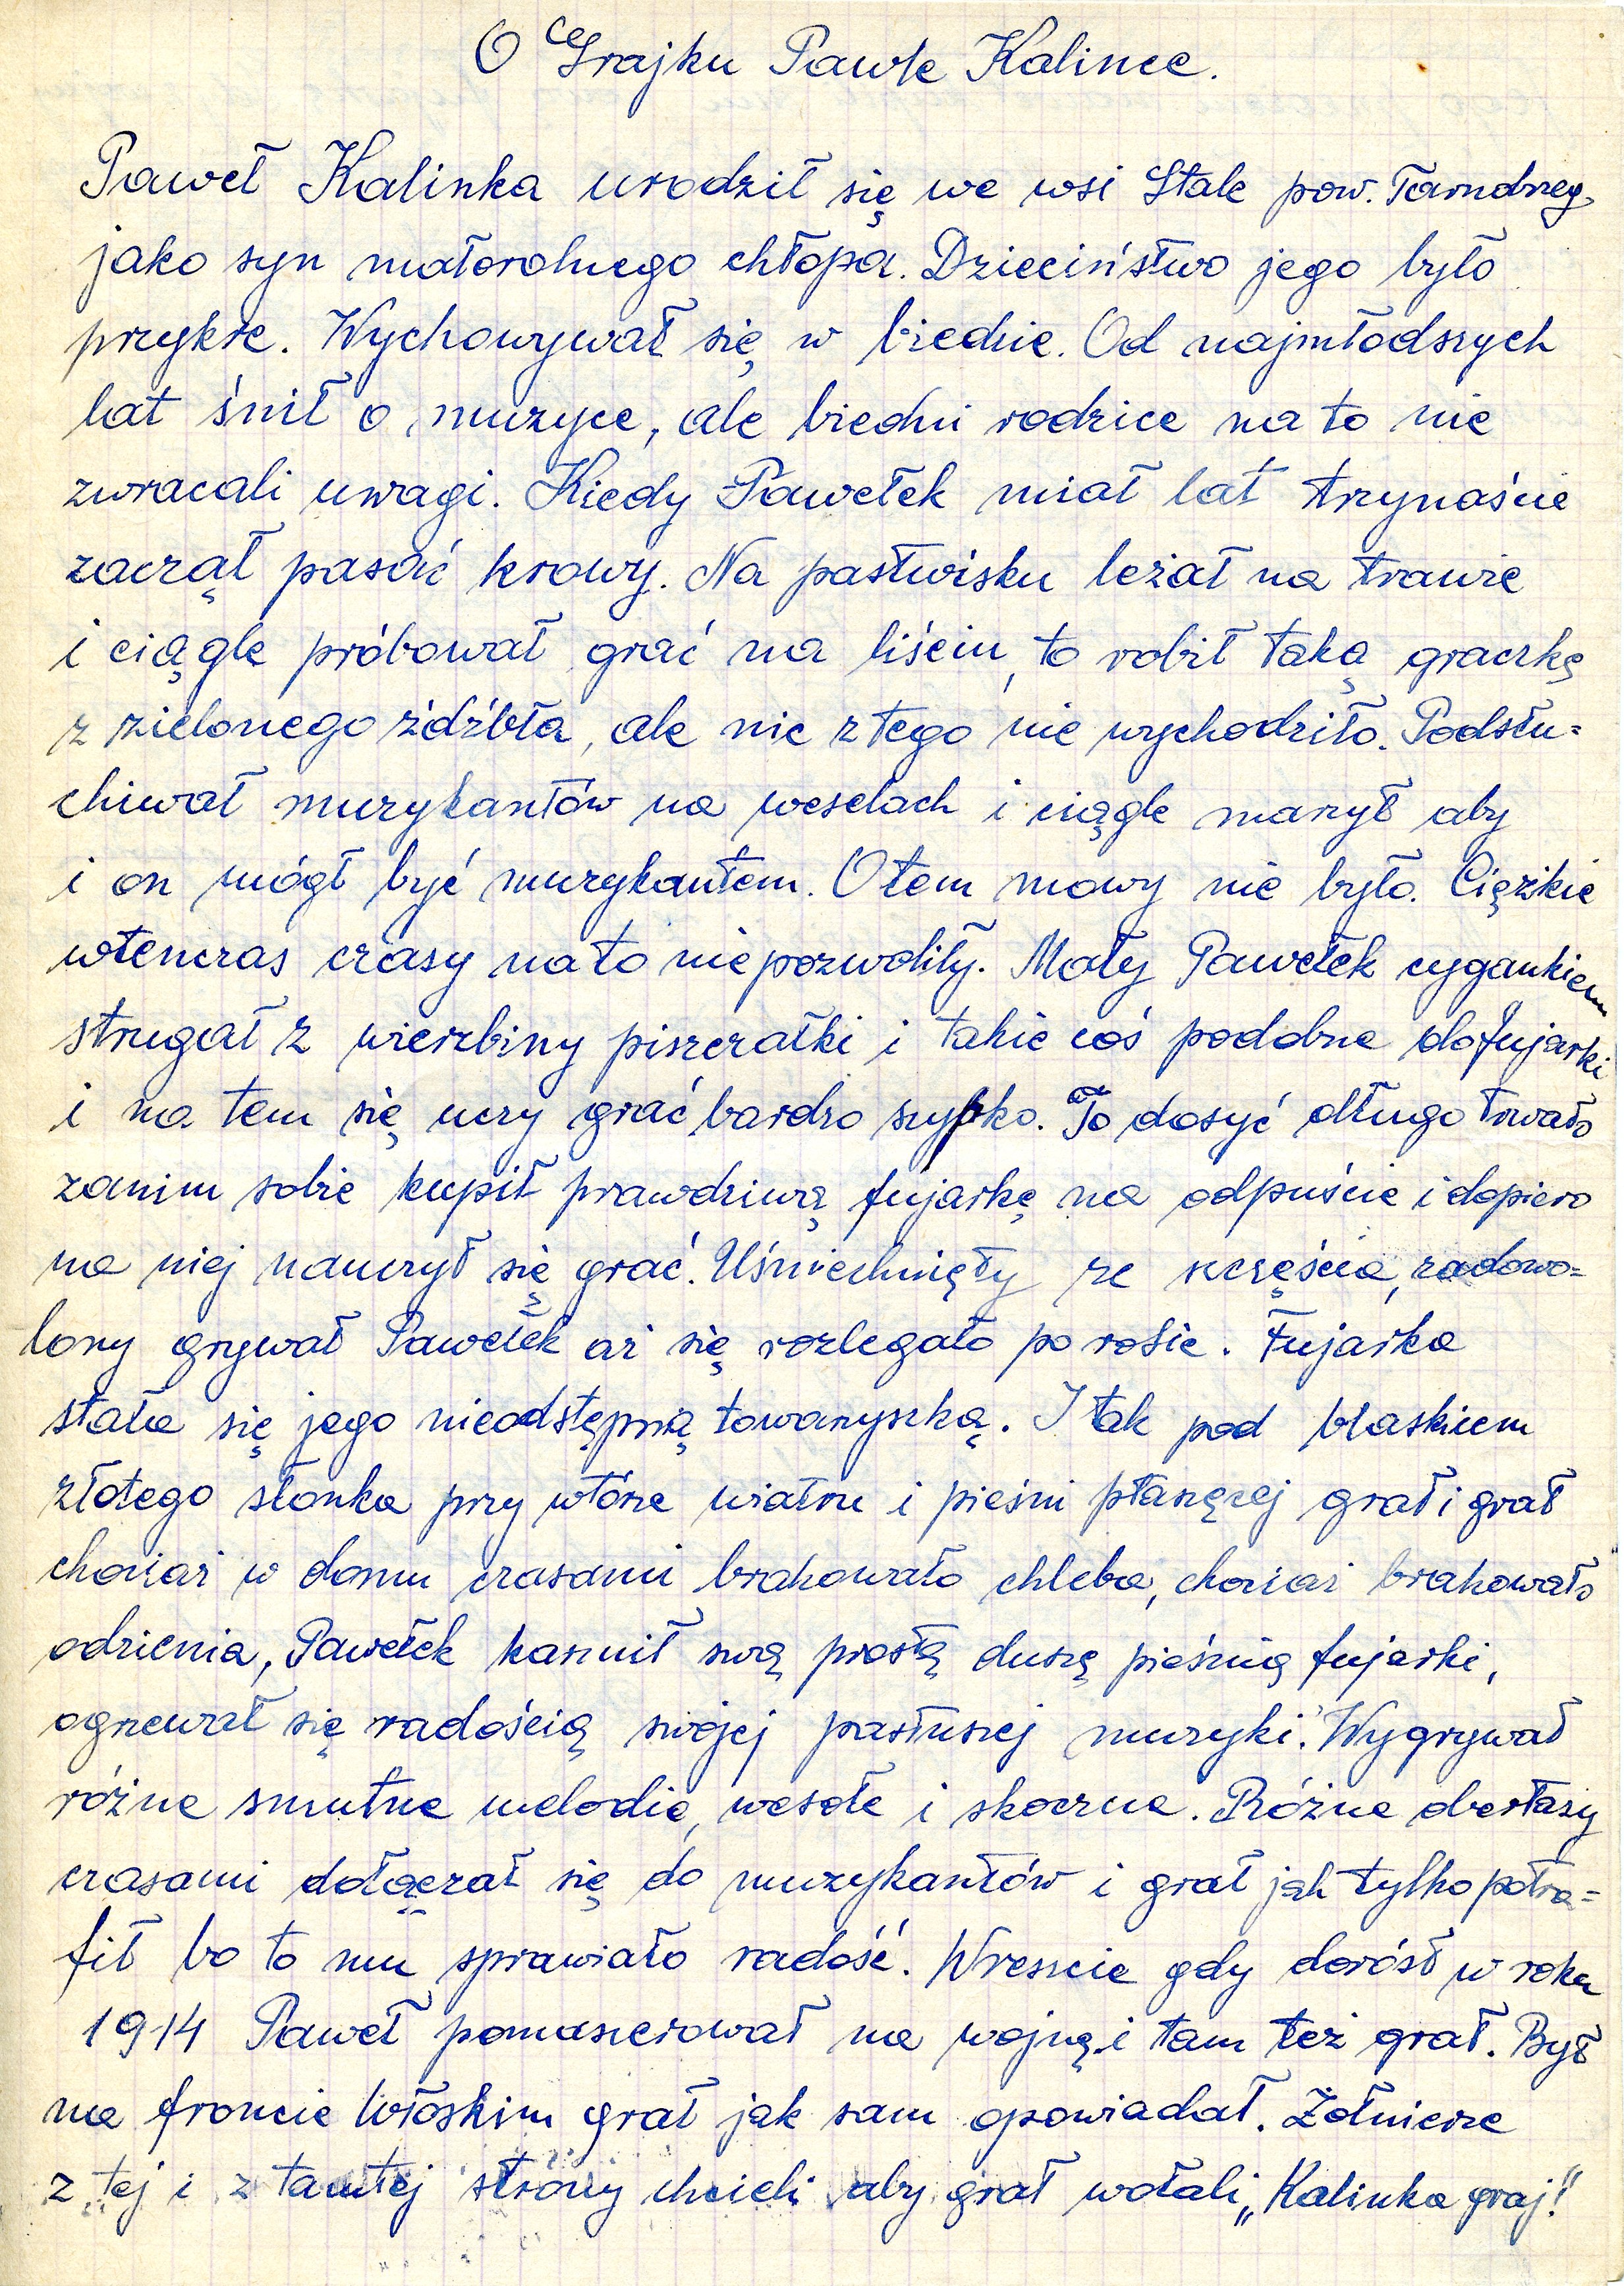 O Grajku Pawle Kalince.
Paweł Kalinka urodził się we wsi Stale pow. Tarnobrzeg.
jako syn małorolnego chłopa. Dzieciństwo jego było
przykre. Wychowywał się w biednie. Od najmłodszych
lat śnił o muzyce, ale biedni rodzice na to nie
zwracali uwagi. Kiedy Pawełek miał lat trzynaście
zaczął pasać krowy. Na pastwisku leżał na trawie
i ciągle próbował grać na liściu, to robił taką graczkę
z zielonego źdźbła, ale nic z tego nie wychodziło. Podsłu=
chiwał muzykantów na weselach i ciągle marzył aby
i on mógł być muzykantem. Otem mowy nie było. Ciężkie
wtenczas czasy nato nie pozwoliły. Mały Pawełek cygankiem
strugał z wierzbiny piszczałki i takie coś podobne do fujarki
i na tem się uczy grać bardzo szybko. To dosyć długo trwało
zanim sobie kupił prawdziwą fujarkę na odpuście i dopiero
na niej nauczył się grać. Uśmiechnięty ze szczęścia, zadowo=
lony grywał Pawełek aż się rozlegało po rosie. Fujarka
stała się jego nieodstępną towarzyszką. I tak pod blaskiem
złotego słonka przy wtórze wiatru i pieśni ptaszęcej grał i grał
chociaż w domu czasami brakowało chleba, chociaż brakowało
odzienia, Pawełek karmił swą prostą duszę pieśnią fujarki,
ogrzewał się radością swojej pastuszej muzyki. Wygrywał
różne smutne melodie, wesołe i skoczne. Różne obertasy
czasami dołączał się do muzykantów i grał jak tylko potra=
fił bo to mu sprawiało radość. Wreszcie gdy dorósł w roku
1914 Paweł pomaszerował na wojnę i tam też grał. Był
na froncie Włoskim grał jak sam opowiadał. Żołnierze
z tej i z tamtej strony chcieli aby grał wołali „Kalinka graj!"